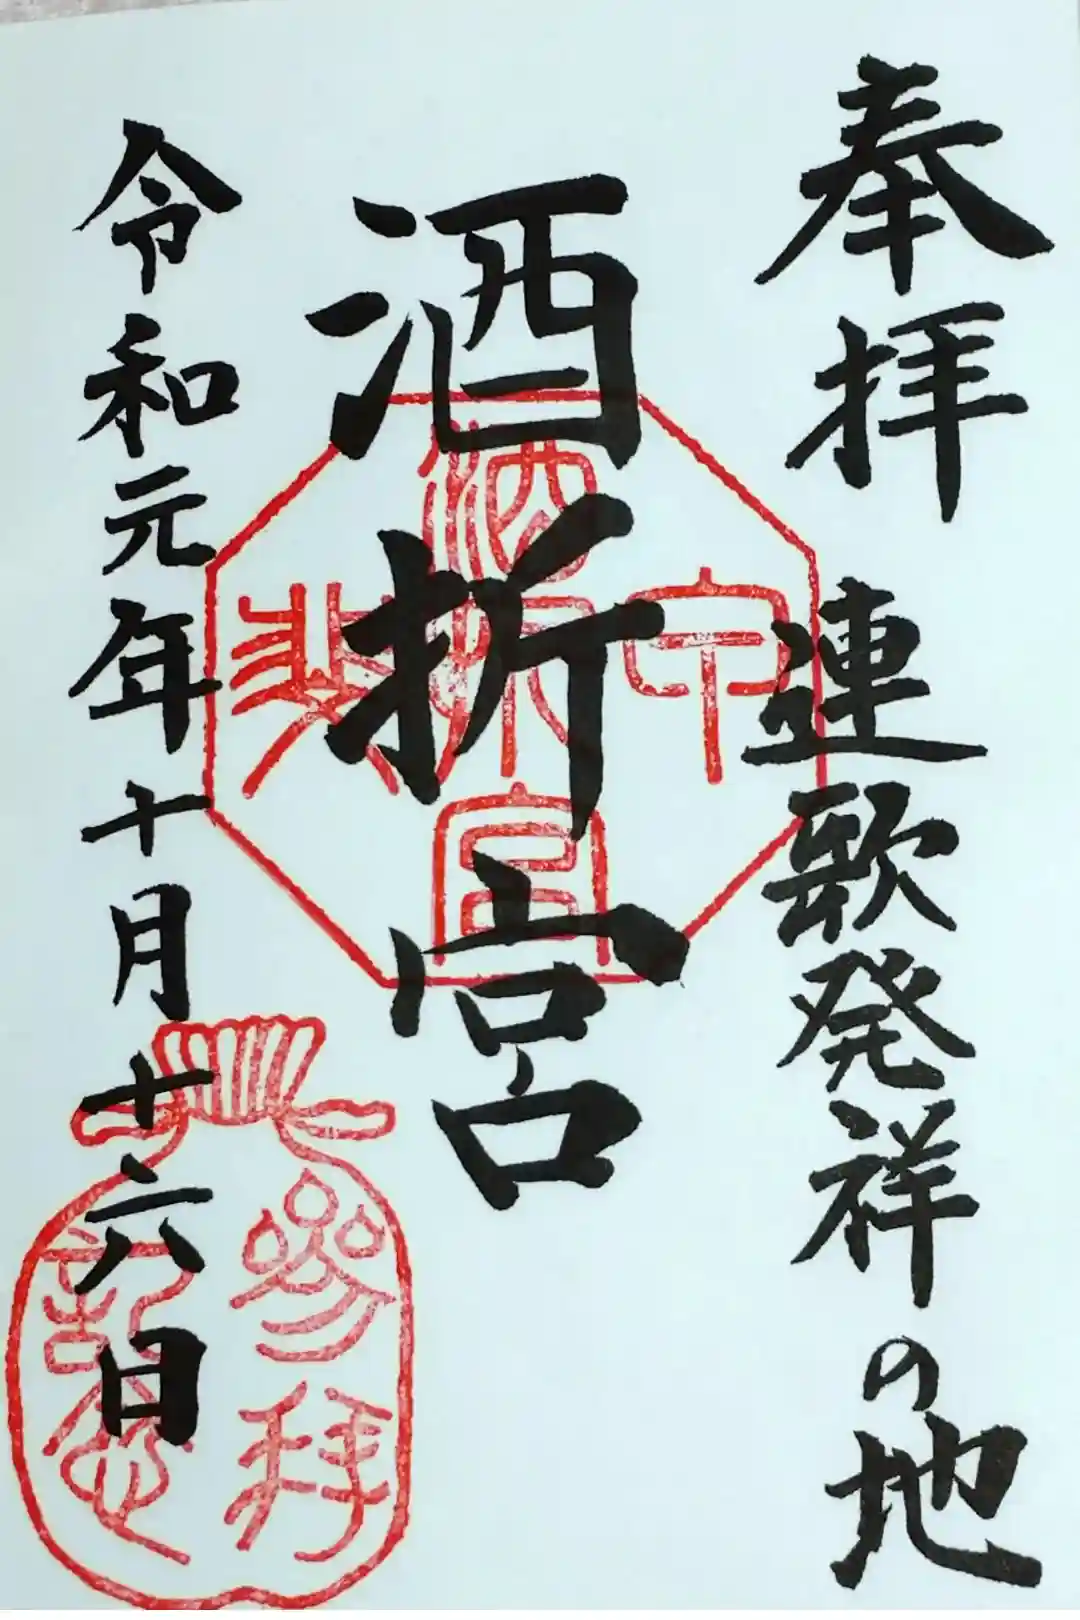 奉拝 連歌発祥の地
酒折宮
令和元年十月十六日
酒折宮
参拝
記念